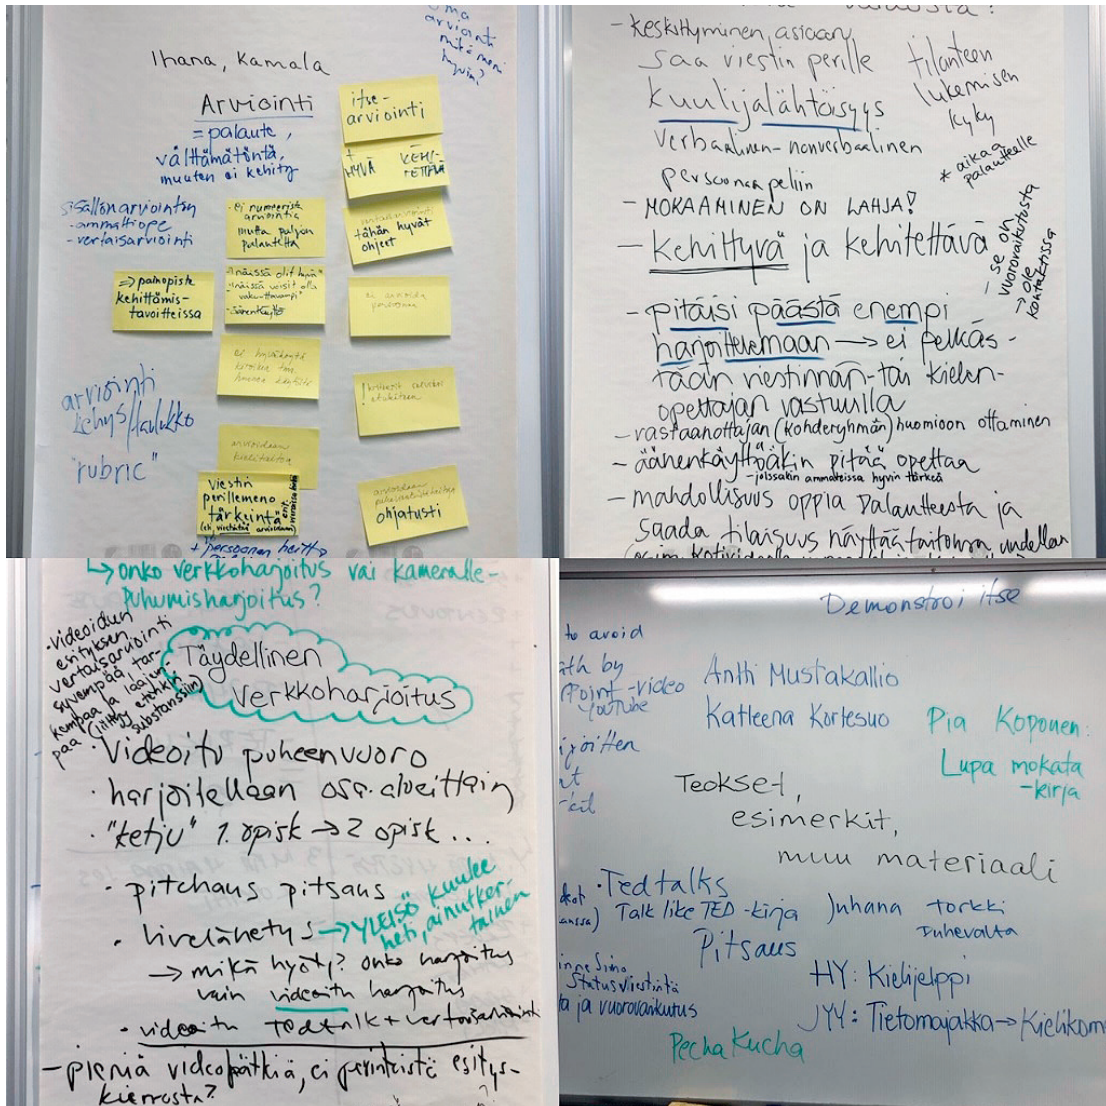 oma
arviointi
mitä meni
hyvin?
Ihana, Kamala
Arviointi
= palaute,
välttämätöntä,
muuten ei kehity
itse-
arviointi
+
HYVÄ KEHI-
TETTÄVÄ
sisällön arviointiin
- ammattiope
- vertaisarviointi
- ei numeerista
arviointia
mutta paljon
palautetta
vertaisarviointi
tähän hyvät
ohjeet
=> painopiste
kehittämis-
tavoitteissa
- "näissä olit hyvä"
- "näissä voisit olla
vakuuttavampi"
- äänenkäyttö
ei arvioida
persoonaa
ei hyväksytä
huonoa käytöstä
! kriteerit
etukäteen
arviointi
kehys/taulukko
"rubric"
arvioidaan
kielitaitoa
viestin
perillemeno
tärkeintä
(eli, viestintää arvioidaan)
arvioidaan
ohjatusti
+ persoonan heitto
- keskittyminen asiaan
saa viestin perille
kuulijalähtöisyys
verbaalinen-nonverbaalinen
persoona peliin
tilanteen
lukemisen
kyky
* aikaa
palautteelle
- MOKAAMINEN ON LAHJA!
- kehittyvä ja kehitettävä
- se on
vuorovaikutusta
→ ole
kontaktissa
- pitäisi päästä enempi
harjoittelemaan → ei pelkäs-
tään viestinnän- tai kielen-
opettajan vastuulla
- vastaanottajan (kohderyhmän) huomioon ottaminen
- äänenkäyttöäkin pitää opettaa
- joissakin ammateissa hyvin tärkeä
- mahdollisuus oppia palautteesta ja
saada tilaisuus näyttää taitonsa uudellen
↳ onko verkkoharjoitus vai kameralle-
puhumisharjoitus?
- videoidun
esityksen
vertaisarviointi
syvempää tar-
kempaa ja laajem-
paa (liittyy etenkin
substanssiin)
Täydellinen
verkkoharjoitus
· Videoitu puheenvuoro
· harjoitellaan osa-alueittain
· "ketju" 1. opisk → 2 opisk ...
· pitchaus pitsaus
· livelähetys → YLEISÖ kuulee
heti, ainutker-
tainen
→ mikä hyöty? onko harjoitus
vain videoitu harjoitus
· videoitu tedtalk + vertaisarviointi
- pieniä videopätkiä, ei perinteistä esitys-
kierrosta?
Demonstroi itse
to avoid
death by
PowerPoint -video
YouTube
Antti Mustakallio
Katleena Kortesuo
Pia Koponen:
Lupa mokata
-kirja
Teokset,
esimerkit,
muu materiaali
· Tedtalks
Talk like TED -kirja
Juhana Torkki
Puhevalta
Pitsaus
Statusviestintä
ja vuorovaikutus
HY: Kielijelppi
JYY: Tietomajakka → Kielikom
Pecha Kucha